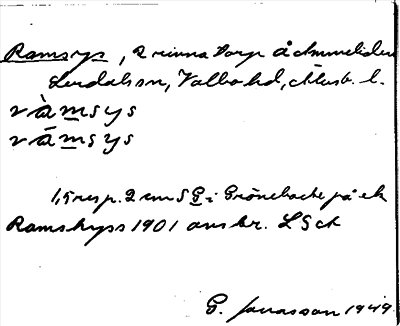 Ramsys, 2 rivna torp å Ammeliden
Lerdalsn, Valbo hd, Älvsb. l.
ràmsys
rāmsys
1,5 resp. 2 cm S G i Grönebacke på ek
Ramshyss 1901 ansbr. LSch
G. Jonasson 1949